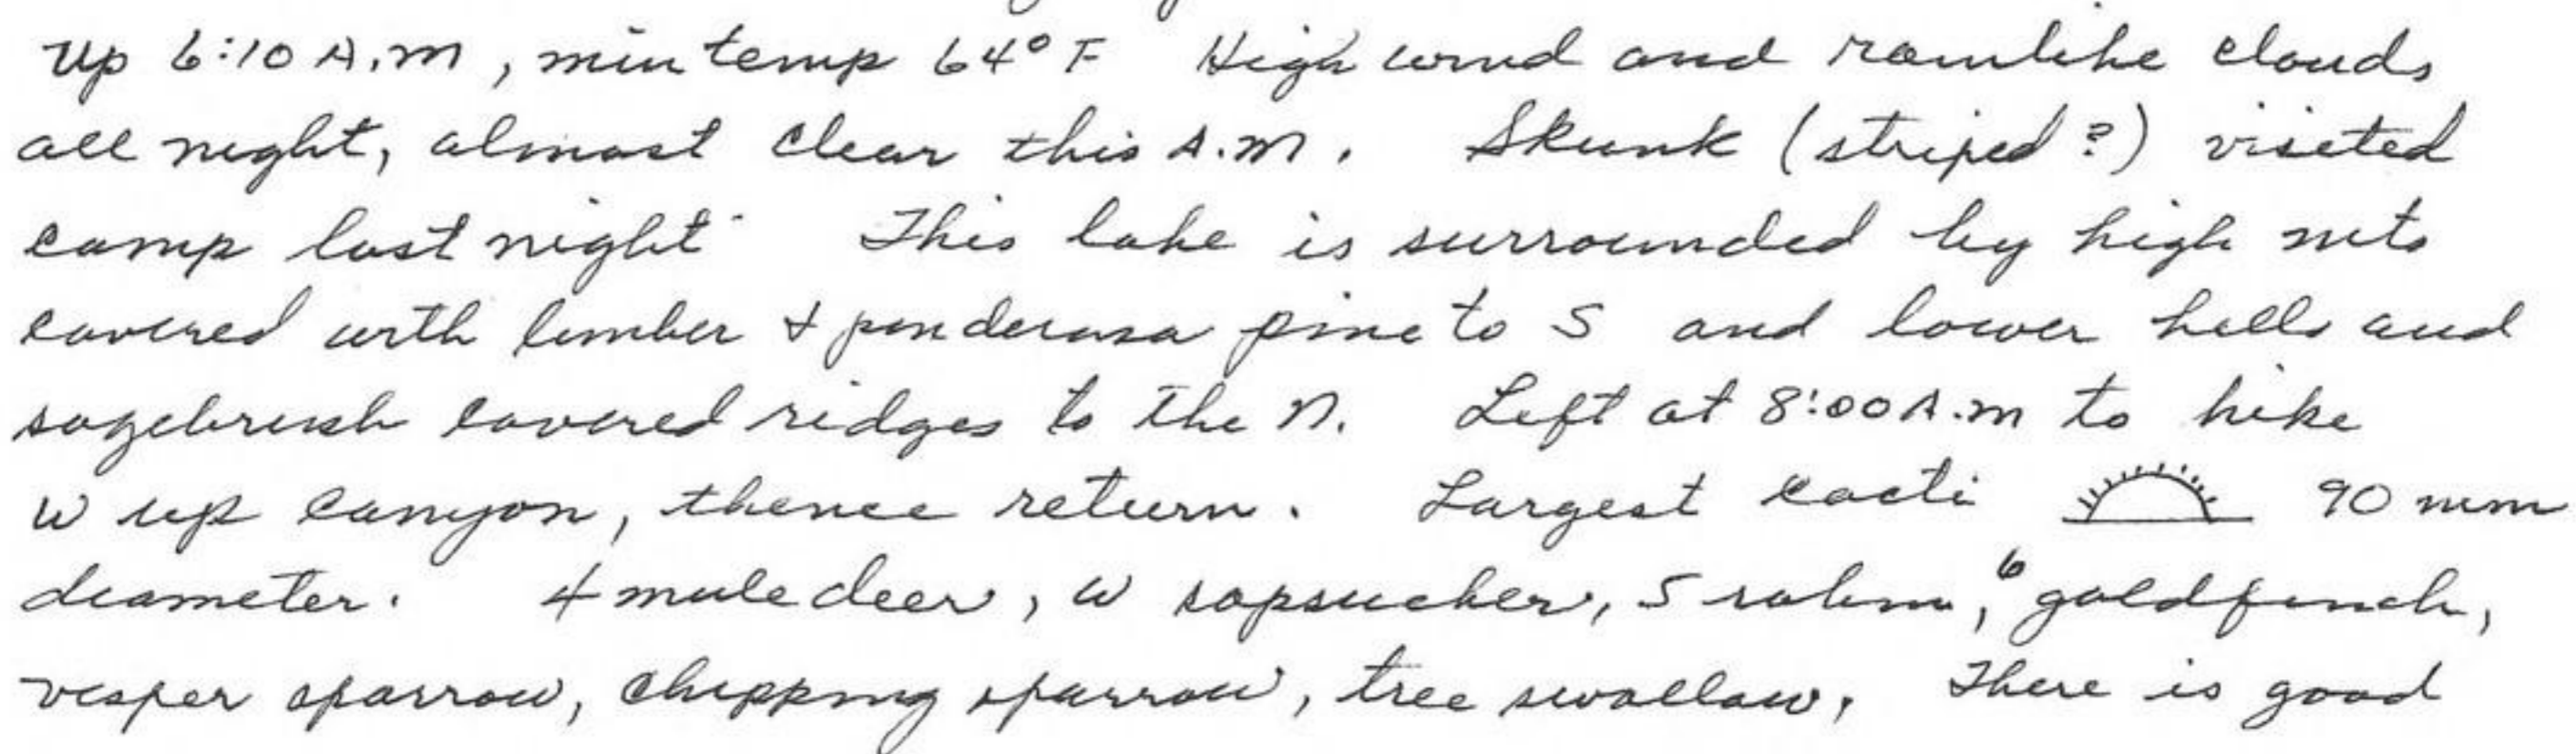 Up 6:10 A.M, min temp 64° F High wind and rainlike clouds
all night, almost clear this A.M. Skunk (striped?) visited
camp last night This lake is surrounded by high mts
covered with limber & ponderosa pine to S and lower hills and
sagebrush covered ridges to the N. Left at 8:00 A.M to hike
W up canyon, thence return. Largest cacti 90 mm
diameter. 4 mule deer, W sapsucker, 5 robin, 6 goldfinch,
vesper sparrow, chipping sparrow, tree swallow. There is good